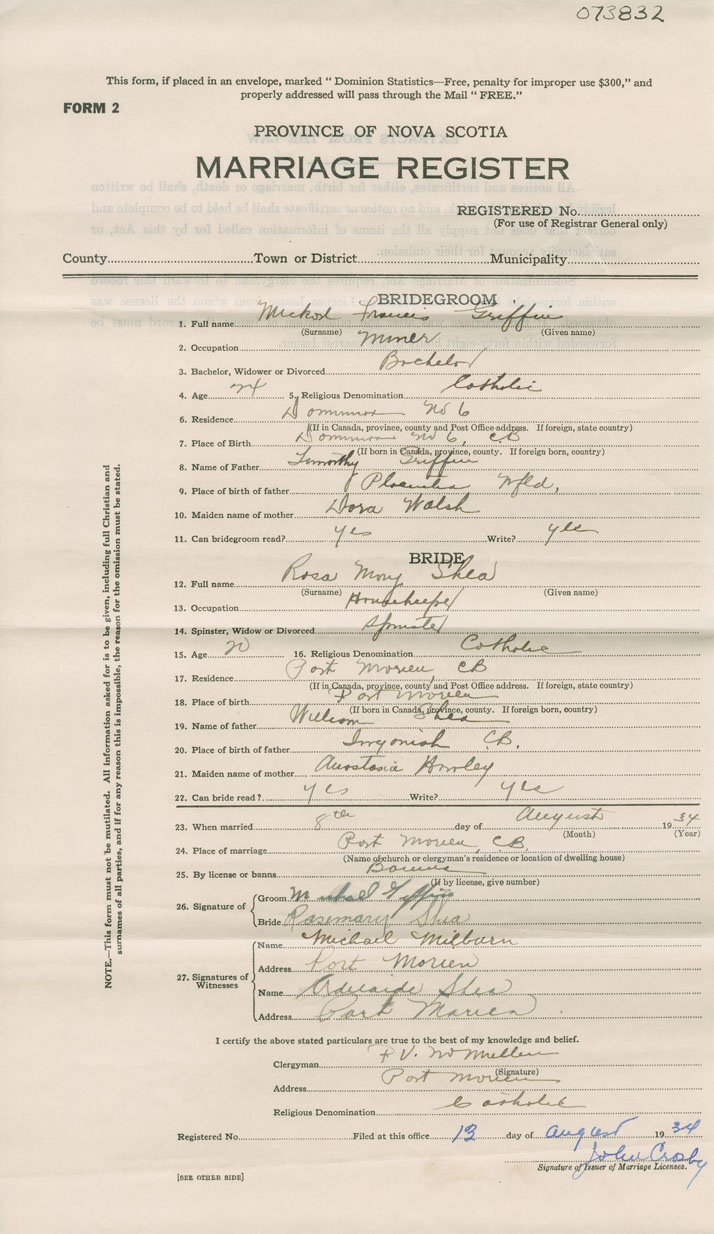 073832
This form, if placed in an envelope, marked " Dominion Statistics—Free, penalty for improper use $300," and
properly addressed will pass through the Mail " FREE."
FORM 2
PROVINCE OF NOVA SCOTIA
MARRIAGE REGISTER
REGISTERED No.
(For use of Registrar General only)
County Town or District Municipality
BRIDEGROOM
1. Full name Michael Francis Griffin
(Surname) (Given name)
2. Occupation Miner
3. Bachelor, Widower or Divorced Bachelor
4. Age 24 5. Religious Denomination Catholic
6. Residence Dominion No 6
(If in Canada, province, county and Post Office address. If foreign, state country)
7. Place of Birth Dominion No 6, CB
(If born in Canada, province, county. If foreign born, country)
8. Name of Father Timothy Griffin
9. Place of birth of father Placentia Nfld,
10. Maiden name of mother Dora Walsh
11. Can bridegroom read? yes Write? yes
BRIDE
12. Full name Rosa Mary Shea
(Surname) (Given name)
13. Occupation Housekeeper
14. Spinster, Widow or Divorced Spinster
15. Age 20 16. Religious Denomination Catholic
17. Residence Port Morien, CB
(If in Canada, province, county and Post Office address. If foreign, state country)
18. Place of birth Port Morien
(If born in Canada, province, county. If foreign born, country)
19. Name of father William Shea
20. Place of birth of father Ingonish CB.
21. Maiden name of mother Anastasia Hawley
22. Can bride read? yes Write? yes
23. When married 8th day of August 1934
(Month) (Year)
24. Place of marriage Port Morien, CB
(Name of church or clergyman's residence or location of dwelling house)
25. By license or banns Banns
(If by license, give number)
26. Signature of Groom Michael Griffin
Bride Rosemary Shea
27. Signatures of Witnesses
Name Michael Milburn
Address Port Morien
Name Adelaide Shea
Address Port Morien
I certify the above stated particulars are true to the best of my knowledge and belief.
Clergyman
(Signature)
Address Port Morien
Religious Denomination Catholic
Registered No. Filed at this office 13 day of August 1934
John Crosby
Signature of Issuer of Marriage Licenses.
[SEE OTHER SIDE]
NOTE.—This form must not be mutilated. All information asked for is to be given, including full Christian and
surnames of all parties, and if for any reason this is impossible, the reason for the omission must be stated.